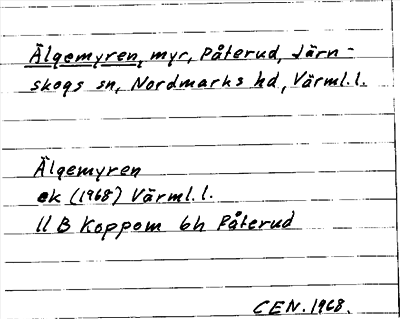 Älgemyren, myr, Påterud, Järn-
skogs sn, Nordmarks hd, Värml.l.
Älgemyren
ek (1968) Värml.l.
11 B Koppom 6h Påterud
CEN. 1968.